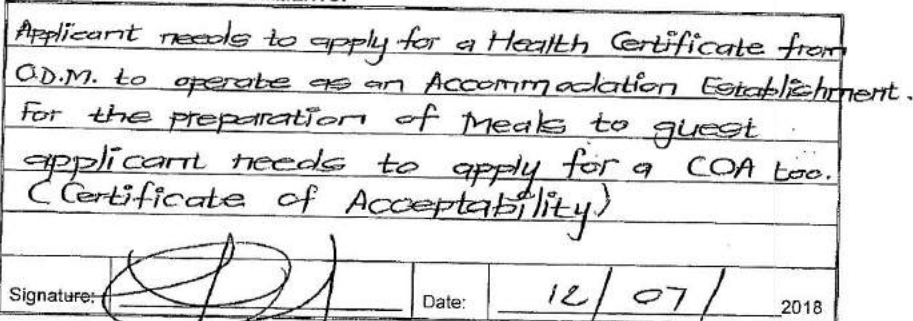 Applicant needs to apply for a Health Certificate from
O.D.M. to operate as an Accommodation Establishment.
For the preparation of Meals to guest
applicant needs to apply for a COA too.
(Certificate of Acceptability)
Signature: Date: 12/07/ 2018